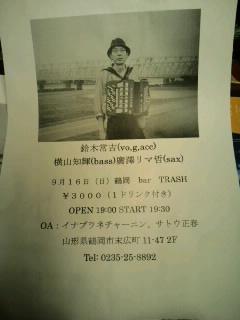 鈴木常吉(vo,g,acc)
横山知輝(bass)廣澤リマ哲(sax)
9月16日（日）鶴岡　bar　TRASH
￥3000（1ドリンク付き）
OPEN 19:00 START 19:30
OA：イナプラネチャーニン、サトウ正春
山形県鶴岡市末広町 11-47 2F
Tel: 0235-25-8892